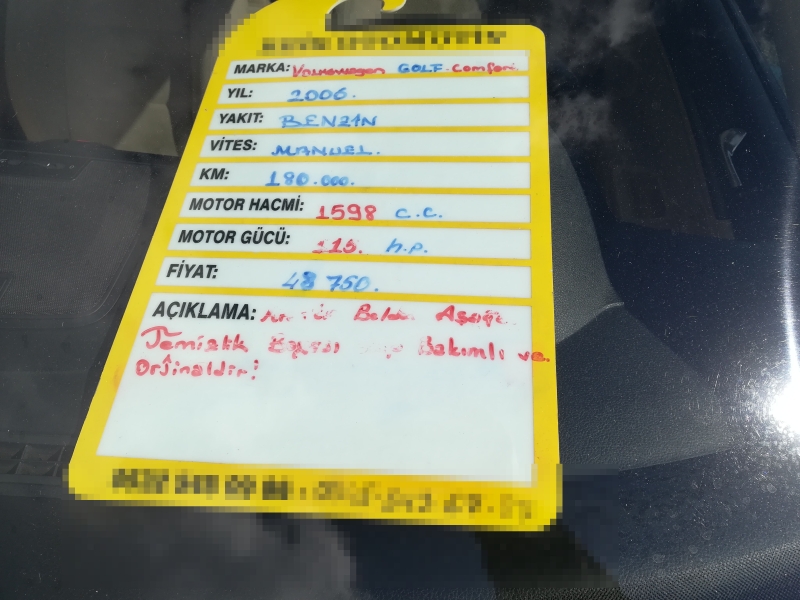 MARKA: Volkswagen GOLF Comfort.
YIL: 2006.
YAKIT: BENZİN
VİTES: MANUEL.
KM: 180.000.
MOTOR HACMİ: 1598 c.c.
MOTOR GÜCÜ: 115. h.p.
FİYAT: 48 750.
AÇIKLAMA: Aşağı
Bakımlı ve
Orjinaldir!